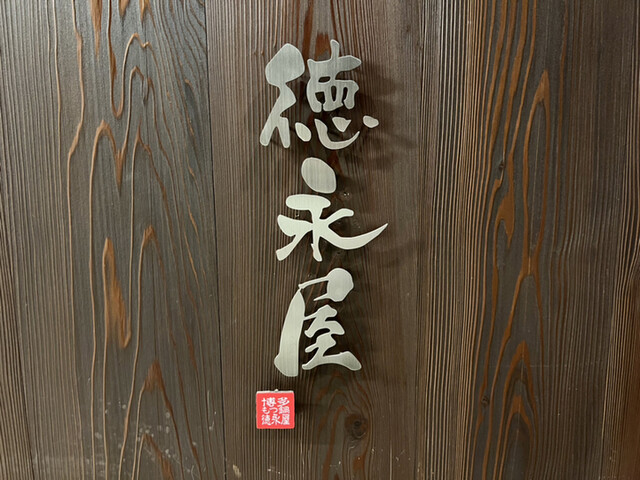 徳永屋
博多
もつ鍋
徳永屋